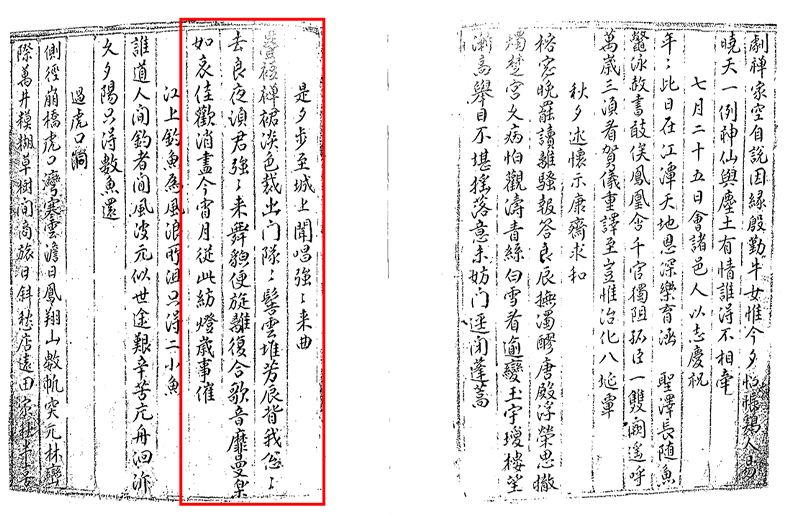 劇禪家空自說因緣殷勤牛女惟今夕怕悵鵝人易
曉天一例神仙與塵土有情誰得不相牽
七月二十五日會諸邑人以志慶祝
年〻此日在江潭天地恩深樂育涵 聖澤長隨魚
鼈泳赦書敲俟鳳凰含千官獨阻孤臣一雙闕遙呼
萬歲三湏看賀儀重譯至豈惟治化八埏覃
秋夕述懷示康齋求和
格窓晚罷讀離騷報答良辰撫濁醪唐殿浮榮思撤
燭楚宮久病怕觀濤青絲白雪看逾變玉宇瓊樓望
漸高舉目不堪搖落意未妨門逕閉蓬蒿
是夕步至城上聞唱強〻來曲
極禪裙淡色裁出門隊〻髻雲堆芳辰背我怱〻
去良夜湏君強〻来舞貌便旋離復合歌音靡曼樂
如哀佳歡消盡今宵月從此紡燈歲事催
江上釣魚為風浪所沮只得二小魚
誰道人間釣者閒風波元似世途艱辛苦亢舟洄泝
久夕陽只得數魚還
過虎口洞
側徑崩橋虎口灣寒雲澹日鳳翔山數帆突元林巒
際萬井模糊草樹間商旅日斜愁店遠田家